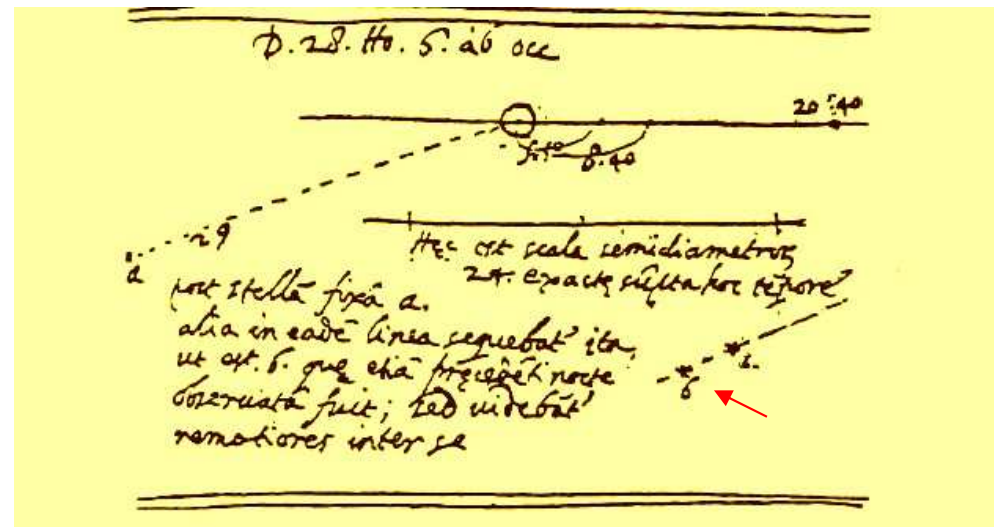 D. 28. Ho. 5. ab occ
20. 40
8. 40
29
a
Hęc est scala semidiametror
24. exactę sūpta hoc tēpore
post stellā fixā a.
alia in eadē linea sequebat ita,
ut est. b. quę etiā pręcedēti nocte
observata fuit; sed videbāt
remotiores inter se
a.
b